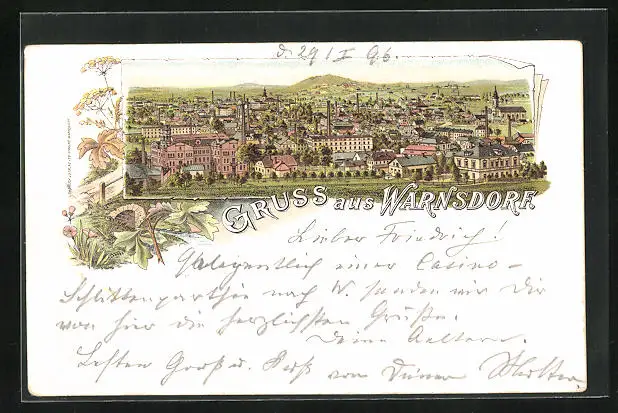 d. 29/I 96.
GRUSS aus WARNSDORF.
Lieber Friedrich!
Gelegentlich einer Casino-
Schlittenparthie nach W. senden wir Dir
von hier die herzlichsten Grüße.
Deine Aeltern.
Besten Gruß u. Kuß von Deiner Mutter